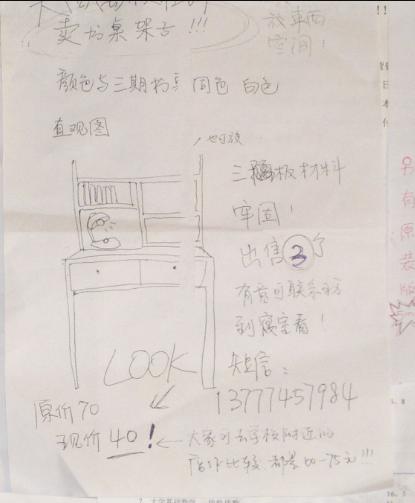 卖的桌架子!!!
放东西
空间!
颜色与三期的桌同色 白色
直观图
也可放
三板材料
牢固!
出售3了
有意可联系
到寝室看!
LOOK
短信:
13777457984
原价70
现价40!
大家可去学校附近的
店外比较 都是60-75元!!!
另有原装版